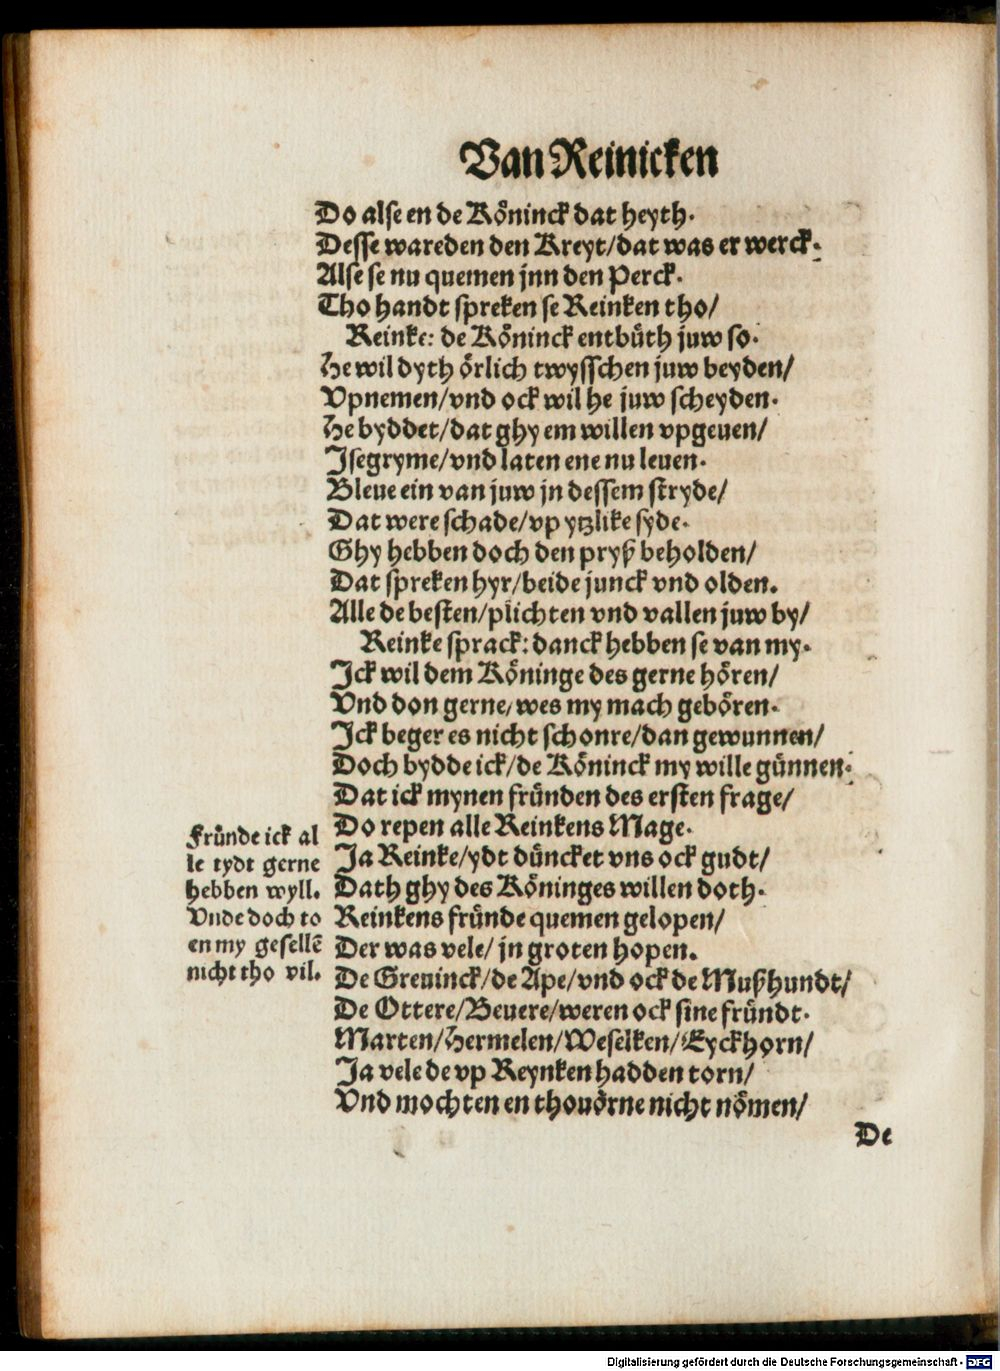 Van Reinicken
Do alse en de Köninck dat heyth.
Desse wareden den Kreyt/dat was er werck.
Alse se nu quemen jnn den Perck.
Tho handt spreken se Reinken tho/
Reinke: de Köninck entbüth juw so.
He wil dyth örlich twysschen juw beyden/
Vpnemen/vnd ock wil he juw scheyden.
He byddet/dat ghy em willen vpgeuen/
Jsegryme/vnd laten ene nu leuen.
Bleue ein van juw jn dessem stryde/
Dat were schade/vp ytzlike syde.
Ghy hebben doch den pryß beholden/
Dat spreken hyr/beide junck vnd olden.
Alle de besten/plichten vnd vallen juw by/
Reinke sprack: danck hebben se van my.
Jck wil dem Köninge des gerne hören/
Vnd don gerne, wes my mach gebören.
Jck beger es nicht schonre/dan gewunnen/
Doch bydde ick/de Köninck my wille günnen.
Dat ick mynen fründen des ersten frage/
Do repen alle Reinkens Mage.
Ja Reinke/ydt düncket vns ock gudt/
Dath ghy des Köninges willen doth.
Reinkens fründe quemen gelopen/
Der was vele/ jn groten hopen.
De Greuinck/de Ape/vnd ock de Mußhundt/
De Ottere/Beuere/weren ock sine fründt.
Marten/Hermelen/Weselken/Eyckhorn/
Ja vele de vp Reynken hadden torn/
Vnd mochten en thouörne nicht nömen/
De
Fründe ick al
le tydt gerne
hebben wyll.
Vnde doch to
en my gesellē
nicht tho vil.
Digitalisierung gefördert durch die Deutsche Forschungsgemeinschaft - DFG